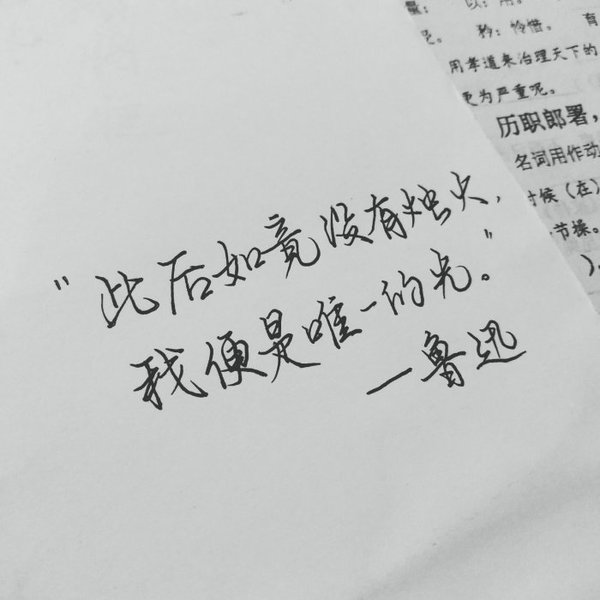 以：用。
矜：怜惜。 有
用孝道来治理天下的
更为严重呢。
历职郎署，
名词用作动
时候（在）
节操。
），
“此后如竟没有炬火，
我便是唯一的光。”
—鲁迅